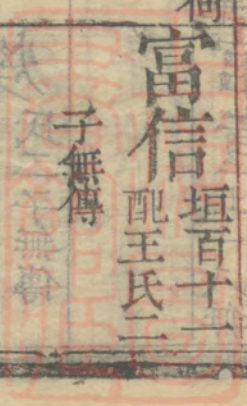 富信
垣百十一
配王氏二
子無傳